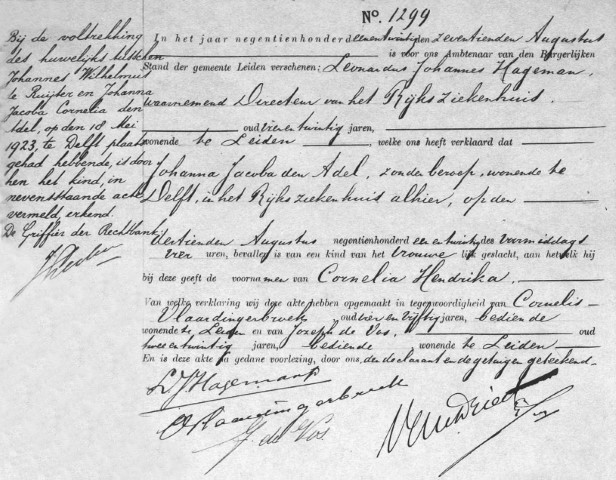 No. 1299
Bij de voltrekking
des huwelijks tusschen
Johannes Wilhelmus
de Ruijter en Johanna
Jacoba Cornelia den
Adel, op den 18 Mei
1923, te Delft plaats
gehad hebbende, is door
hen het kind, in
nevenstaande acte
vermeld, erkend.
De Griffier der Rechtbank
In het jaar negentienhonderd eenentwintig den zeventienden Augustus
is voor ons Ambtenaar van den Burgerlijken
Stand der gemeente Leiden verschenen: Leonardus Johannes Hageman,
waarnemend Directeur van het Rijks ziekenhuis.
oud vierentwintig jaren,
wonende te Leiden, welke ons heeft verklaard dat
Johanna Jacoba den Adel, zonder beroep, wonende te
Delft, in het Rijksziekenhuis alhier, op den
veertienden Augustus negentienhonderd eenentwintig des voormiddags
vier uren, bevallen is van een kind van het vrouwelijk geslacht, aan hetwelk hij
bij deze geeft de voornamen van Cornelia Hendrika.
Van welke verklaring wij deze akte hebben opgemaakt in tegenwoordigheid van Cornelis
Vlaardingerbroek, oud vier en vijftig jaren, bediende
wonende te Leiden en van Joseph de Vos, oud
twee en twintig jaren, bediende wonende te Leiden
En is deze akte na gedane voorlezing, door ons, den declarant en de getuigen geteekend.
LJHageman
CVlaardingerbroek
J. de Vos